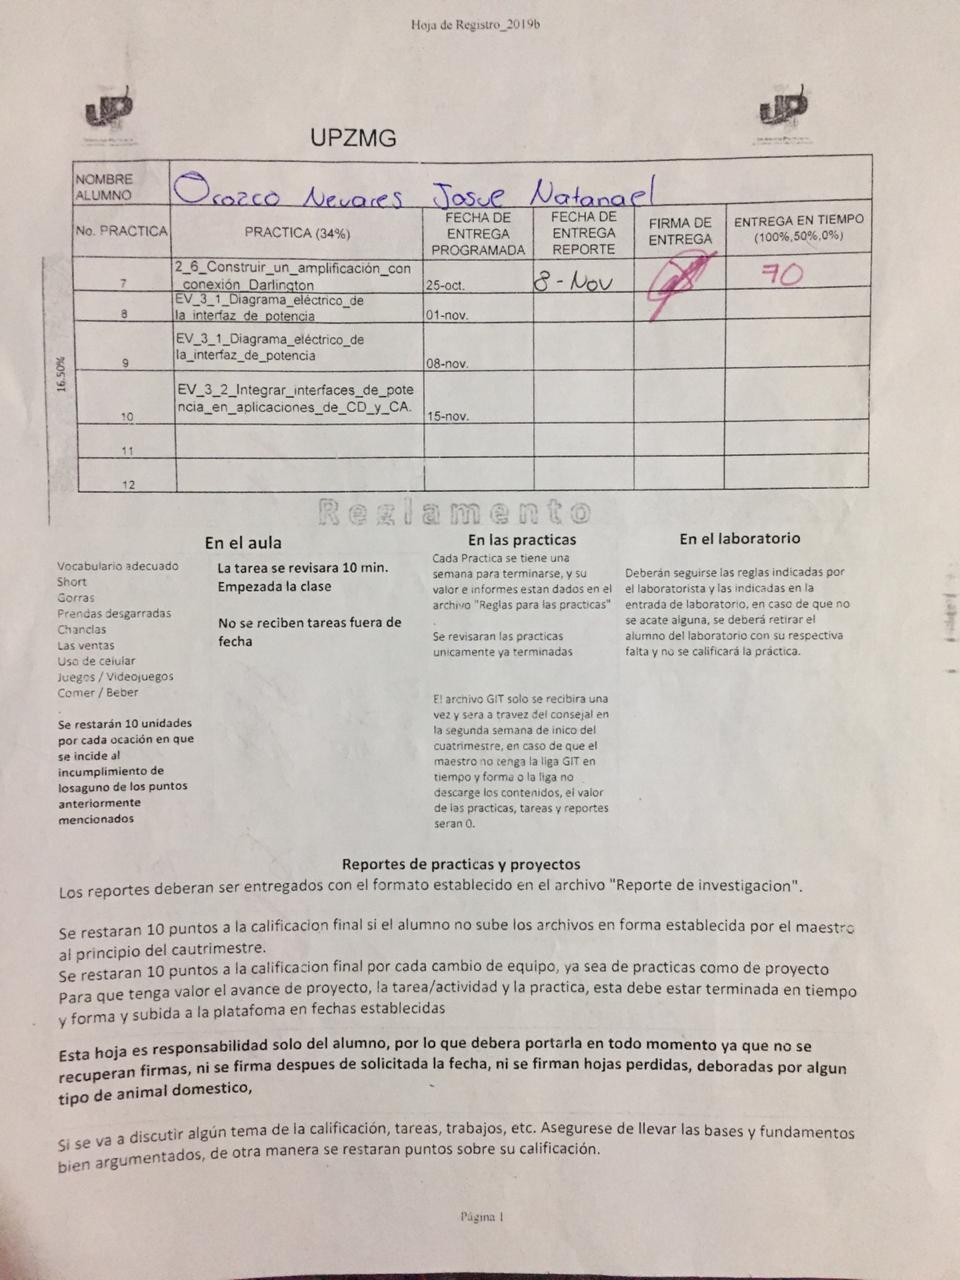 Hoja de Registro_2019b
UP
UP
UPZMG
NOMBRE
ALUMNO
Orozco Nevares Josue Natanael
No. PRACTICA
PRACTICA (34%)
FECHA DE
ENTREGA
PROGRAMADA
FECHA DE
ENTREGA
REPORTE
FIRMA DE
ENTREGA
ENTREGA EN TIEMPO
(100%,50%,0%)
16.50%
7
2_6_Construir_un_amplificación_con
_conexión_Darlington
25-oct.
8-Nov
70
8
EV_3_1_Diagrama_eléctrico_de
la_interfaz_de_potencia
01-nov.
9
EV_3_1_Diagrama_eléctrico_de
la_interfaz_de_potencia
08-nov.
10
EV_3_2_Integrar_interfaces_de_pote
ncia_en_aplicaciones_de_CD_y_CA.
15-nov.
11
12
Reglamento
En el aula
Vocabulario adecuado
Short
Gorras
Prendas desgarradas
Chanclas
Las ventas
Uso de celular
Juegos / Videojuegos
Comer / Beber
Se restarán 10 unidades
por cada ocación en que
se incide al
incumplimiento de
losaguno de los puntos
anteriormente
mencionados
La tarea se revisara 10 min.
Empezada la clase
No se reciben tareas fuera de
fecha
En las practicas
Cada Practica se tiene una
semana para terminarse, y su
valor e informes estan dados en el
archivo "Reglas para las practicas"
Se revisaran las practicas
unicamente ya terminadas
El archivo GIT solo se recibira una
vez y sera a travez del consejal en
la segunda semana de inico del
cuatrimestre, en caso de que el
maestro no tenga la liga GIT en
tiempo y forma o la liga no
descarge los contenidos, el valor
de las practicas, tareas y reportes
seran 0.
En el laboratorio
Deberán seguirse las reglas indicadas por
el laboratorista y las indicadas en la
entrada de laboratorio, en caso de que no
se acate alguna, se deberá retirar el
alumno del laboratorio con su respectiva
falta y no se calificará la práctica.
Reportes de practicas y proyectos
Los reportes deberan ser entregados con el formato establecido en el archivo "Reporte de investigacion".
Se restaran 10 puntos a la calificacion final si el alumno no sube los archivos en forma establecida por el maestro
al principio del cautrimestre.
Se restaran 10 puntos a la calificacion final por cada cambio de equipo, ya sea de practicas como de proyecto
Para que tenga valor el avance de proyecto, la tarea/actividad y la practica, esta debe estar terminada en tiempo
y forma y subida a la platafoma en fechas establecidas
Esta hoja es responsabilidad solo del alumno, por lo que debera portarla en todo momento ya que no se
recuperan firmas, ni se firma despues de solicitada la fecha, ni se firman hojas perdidas, deboradas por algun
tipo de animal domestico,
Si se va a discutir algún tema de la calificación, tareas, trabajos, etc. Asegurese de llevar las bases y fundamentos
bien argumentados, de otra manera se restaran puntos sobre su calificación.
Página 1